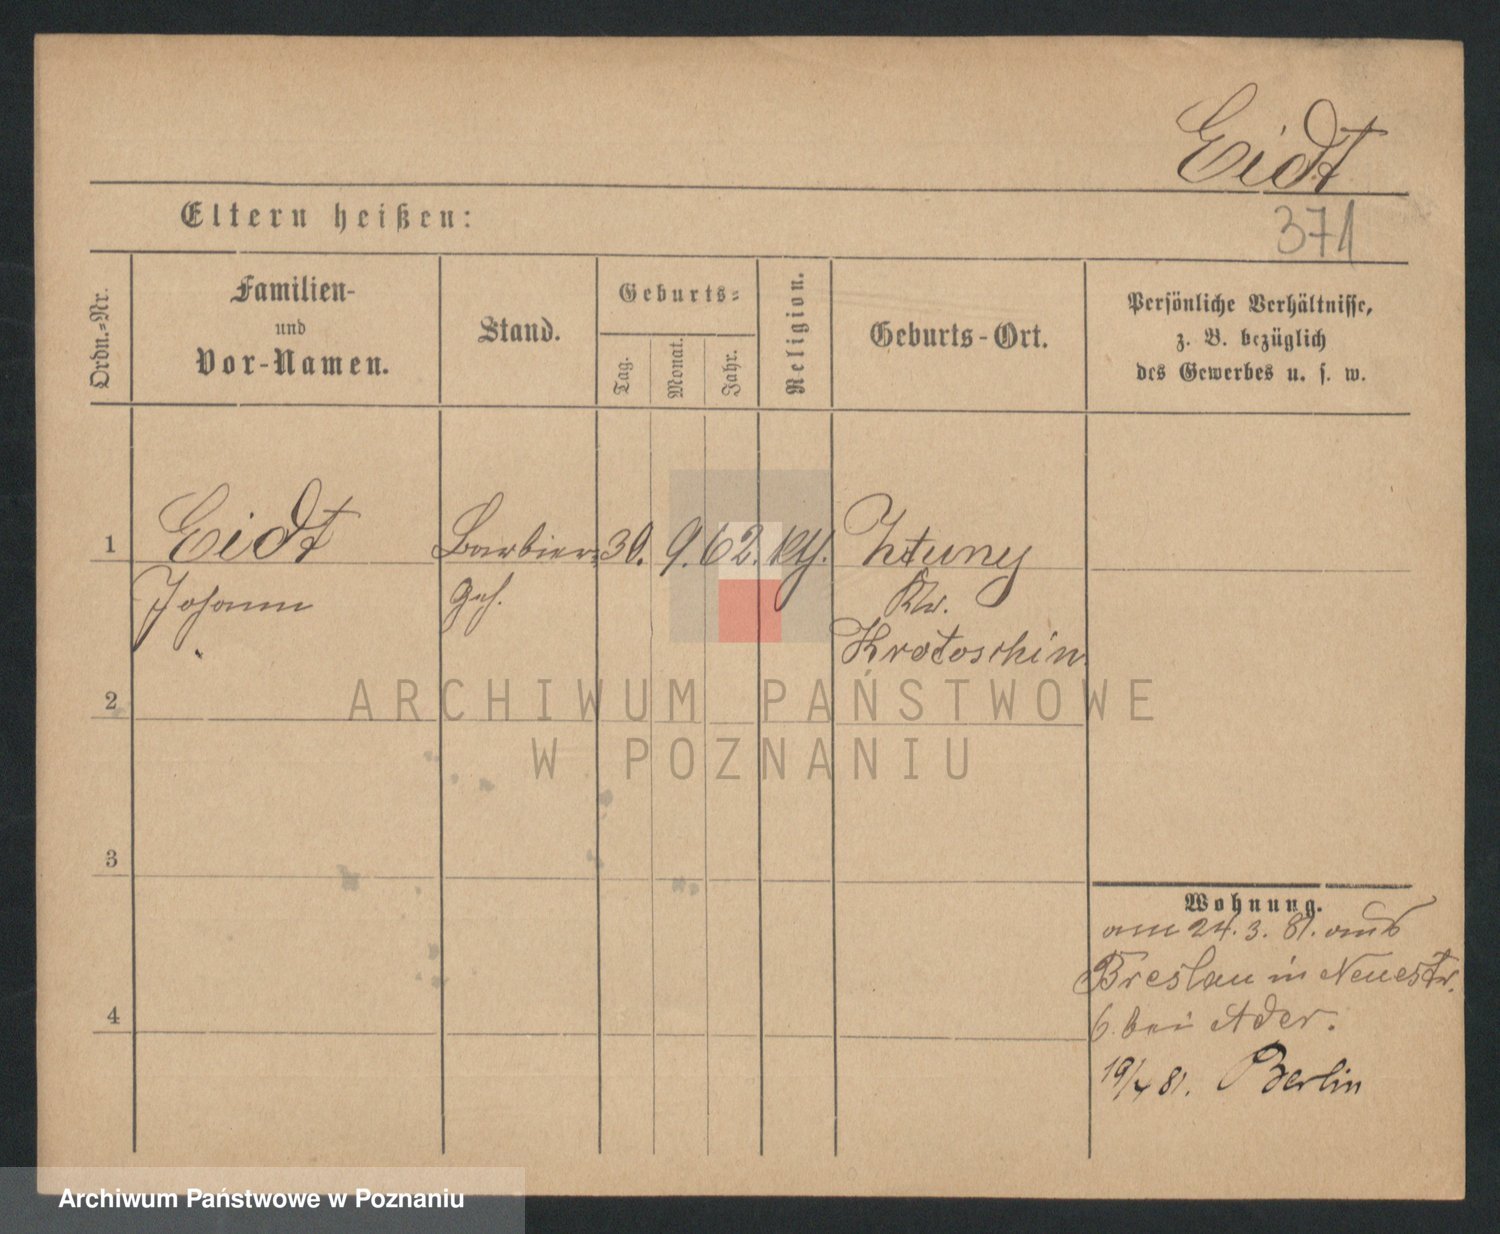 Eidt
Eltern heißen:
371
Ordn.-Nr.
Familien-
und
Vor-Namen.
Stand.
Geburts-
Tag.
Monat.
Jahr.
Religion.
Geburts-Ort.
Persönliche Verhältnisse,
z. B. bezüglich
des Gewerbes u. s. w.
1
Eidt
Johann
Barbier-
Geh.
30.
9.
62.
Zduny
Kr.
Krotoschin
2
3
4
Wohnung.
am 24. 3. 81. aus
Breslau in Neuestr.
6. bei Ader.
19/4 81. Berlin
ARCHIWUM PAŃSTWOWE
W POZNANIU
Archiwum Państwowe w Poznaniu